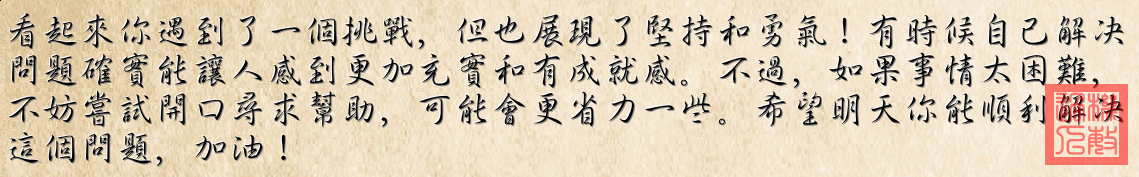 看起來你遇到了一個挑戰，但也展現了堅持和勇氣！有時候自己解決
問題確實能讓人感到更加充實和有成就感。不過，如果事情太困難，
不妨嘗試開口尋求幫助，可能會更省力一些。希望明天你能順利解決
這個問題，加油！